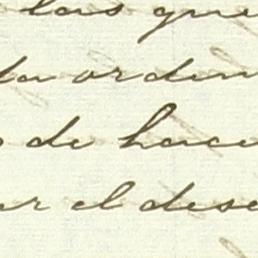 las que
da orden
o de hace
ar el dese